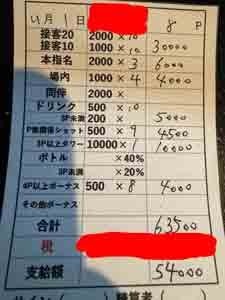 11月1日 8 P
接客20 2000 × 10
接客10 1000 × 10 30000
本指名 2000 × 3 6000
場内 1000 × 4 4000
同伴 2000 ×
ドリンク 500 × 10 5000
3P未満 200 ×
P無関係ショット 500 × 9 4500
3P以上タワー 10000 × 1 10000
ボトル ×40%
3P未満 ×20%
4P以上ボーナス 500 × 8 4000
その他ボーナス
合計 63500
税
支給額 54000
サイン( ) 精算者( )